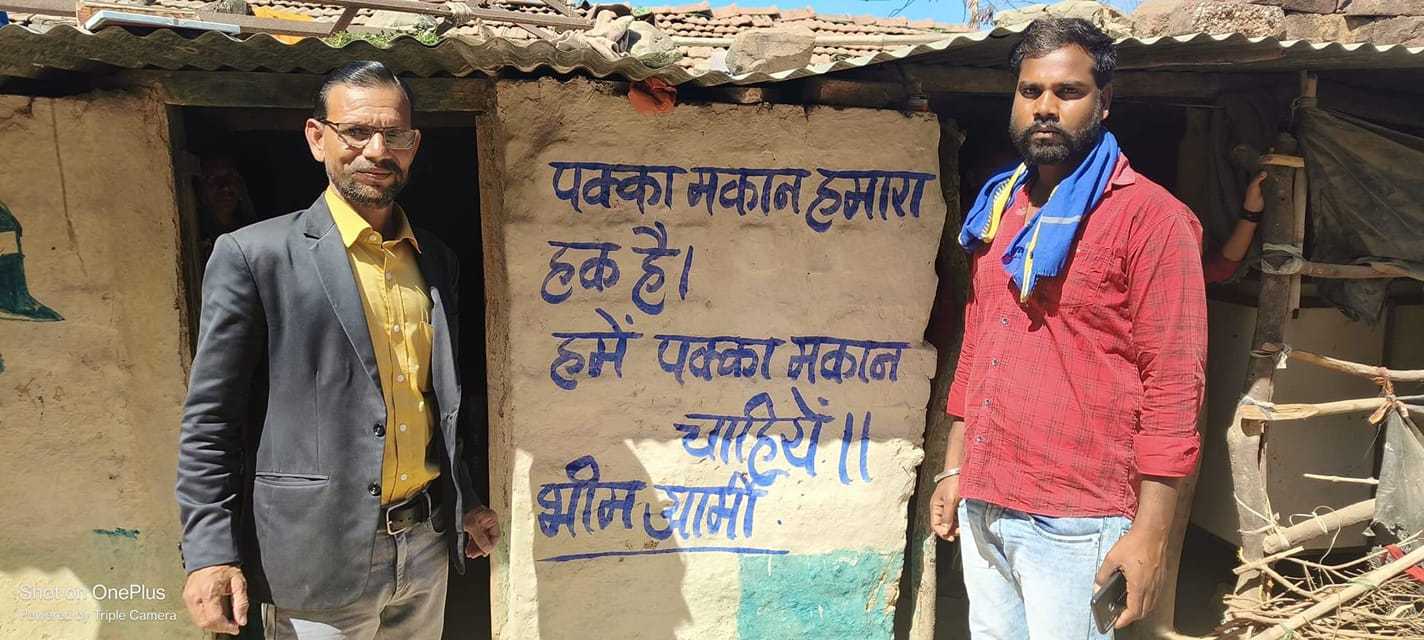 पक्का मकान हमारा
हक है।
हमें पक्का मकान
चाहियें।।
भीम आर्मी
Shot on OnePlus
Powered by Triple Camera